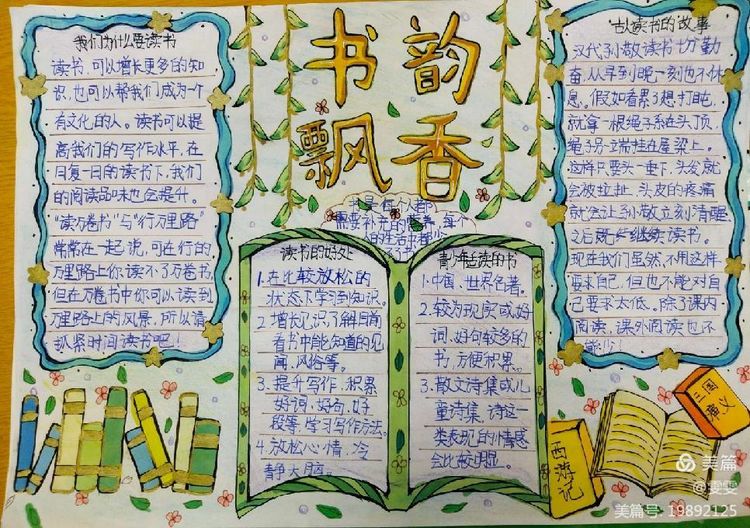 书韵
飘香
我们为什么要读书
读书,可以增长更多的知
识,也可以帮我们成为一个
有文化的人。读书可以提
高我们的写作水平,在
日复一日的读书下,我们
的阅读品味也会提升。
“读万卷书”与“行万里路”
常常在一起说,可在行的
万里路上你读不了万卷书,
但在万卷书中你可以读到
万里路上的风景,所以请
抓紧时间读书吧!
书是每个人都
需要补充的营养,每个
人的生活中都少
不了
读书的好处
1.在比较放松的
状态下学习到知识。
2.增长见识,了解目前
看书中能知道的见
闻、风俗等。
3.提升写作,积累
好词、好句、好
段等,学习写作方法。
4.放松心情,冷
静大脑。
青少年适读的书
1.中国、世界名著。
2.较为现实或好
词、好句较多的
书,方便积累。
3.散文诗集或儿
童诗集,诗这一
类表现的情感
会比较明显。
古人读书的故事
汉代孙敬读书十分勤
奋,从早到晚一刻也不休
息。假如看累了想打盹,
就拿一根绳子系在头顶,
绳子另一端挂在屋梁上。
这样只要头一垂下,头发就
会被拉扯,头皮的疼痛
就会让孙敬立刻清醒
之后既继续读书。
现在我们虽然不用这样
要求自己,但也不能对自
己要求太低。除了课内
阅读,课外阅读也不
能少!
三国
演义
西游记
美篇
@雯雯
美篇号:19892125